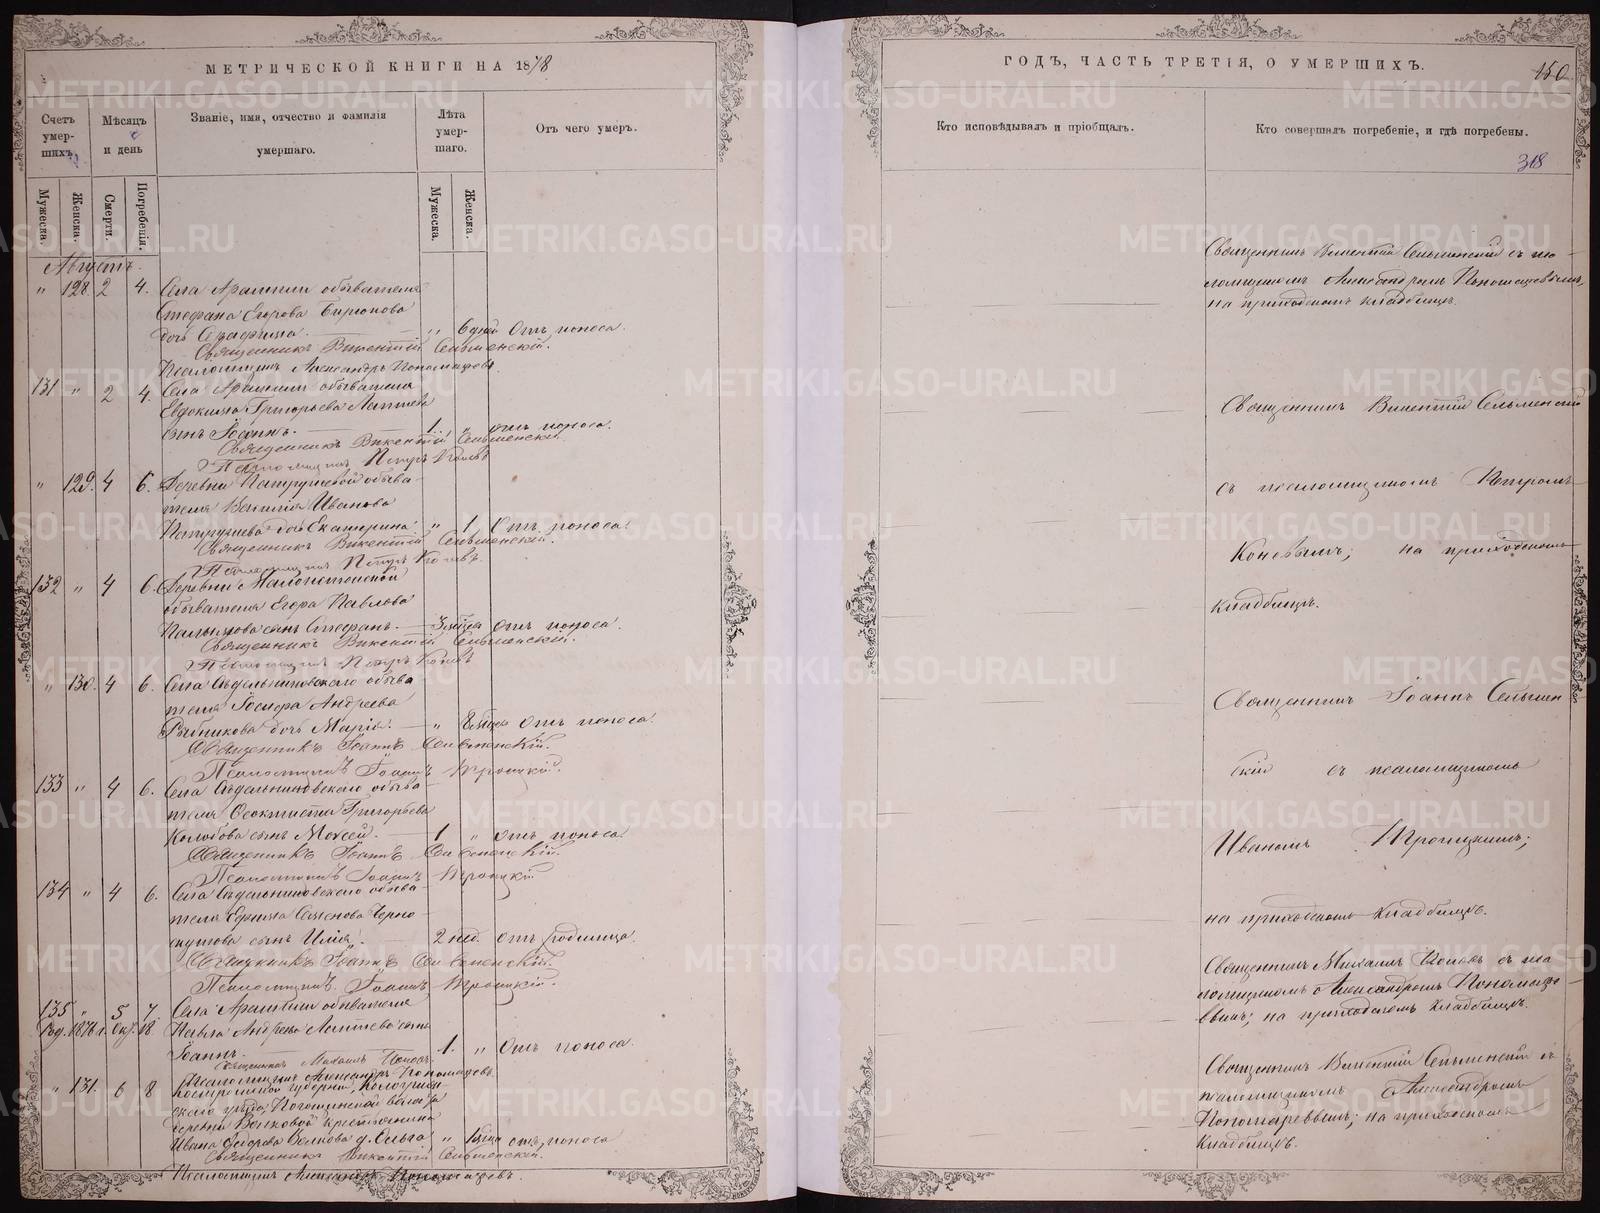 МЕТРИЧЕСКОЙ КНИГИ НА 1878
Счетъ умер-шихъ.
Мѣсяцъ и день
Званіе, имя, отчество и фамилія умершаго.
Лѣта умер-шаго.
Отъ чего умеръ.
Мужеска. Женска. Смерти. Погребенія. Мужеска. Женска.
Августъ.
" 128. 2 4. Села Арамили обывателя
Стефана Егорова Бирюкова
дочь Серафима. " 6 дней Отъ поноса.
Священникъ Викентій Сельменскій.
Псаломщикъ Александръ Пономаревъ.
131 " 2 4. Села Арамили обывателя
Евдокима Григорьева Лаптева
сынъ Іоаннъ. 1. " отъ поноса.
Священникъ Викентій Сельменскій.
Псаломщикъ Петръ Коневъ
" 129. 4 6. Деревни Патрушевой обыва-
теля Иванова
Патрушева дочь Екатерина " 1. Отъ поноса.
Священникъ Викентій Сельменскій.
Псаломщикъ Петръ Коневъ.
132 " 4 6. Деревни
обывателя Егора Павлова
сынъ Стефанъ. 3 мѣсяца отъ поноса.
Священникъ Викентій Сельменскій.
Псаломщикъ Петръ Коневъ
" 130. 4 6. Села Сѣдельниковскаго обыва-
теля Іосифа Андреева
дочь Марія. " отъ поноса.
Священникъ Іоаннъ Сельменскій.
Псаломщикъ Іоаннъ Троицкій.
133 " 4 6. Села Сѣдельниковскаго обыва-
теля Феоктиста Григорьева
Колобова сынъ Моѵсей. 1 " отъ поноса
Священникъ Іоаннъ Сельменскій.
Псаломщикъ Іоаннъ Троицкій
134 " 4 6. Села Сѣдельниковскаго обыва-
теля Ефима Семенова Черно-
скутова сынъ Илія. 2 нед. отъ родимца.
Священникъ Іоаннъ Сельменскій.
Псаломщикъ Іоаннъ Троицкій.
135 " 5 7. Села Арамили обывателя
Род. 1876 г. Окт. 18. Павла Андреева Лаптева сынъ
Іоаннъ. 1. " Отъ поноса.
Священникъ Михаилъ Поповъ.
Псаломщикъ Александръ Пономаревъ.
" 131. 6 8 Костромской губерніи, Кологрив-
скаго уѣзда, волости
деревни крестьянина
Ивана Волкова д. Ольга " отъ поноса
Священникъ Викентій Сельменскій.
Псаломщикъ Александръ Пономаревъ.
ГОДЪ, ЧАСТЬ ТРЕТІЯ, О УМЕРШИХЪ.
150
Кто исповѣдывалъ и пріобщалъ.
Кто совершалъ погребеніе, и гдѣ погребены.
318
Священникъ Викентій Сельменскій съ пса-
ломщикомъ Александромъ Пономаревымъ,
на приходскомъ кладбищѣ.
Священникъ Викентій Сельменскій
съ псаломщикомъ Петромъ
Коневымъ; на приходскомъ
кладбищѣ.
Священникъ Іоаннъ Сельмен
скій съ псаломщикомъ
Иваномъ Троицкимъ;
на приходскомъ кладбищѣ.
Священникъ Михаилъ Поповъ съ пса
ломщикомъ Александромъ Пономаре
вымъ; на приходскомъ кладбищѣ.
Священникъ Викентій Сельменскій съ
псаломщикомъ Александромъ
Пономаревымъ; на приходскомъ
кладбищѣ.
METRIKI.GASO-URAL.RU